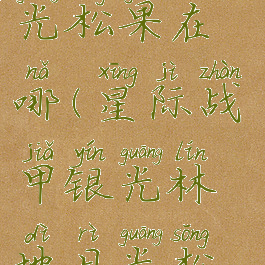 光松果在
nǎ xīng jì zhàn
哪(星际战
jiǎ yín guāng lín
甲银光林
dì rì guāng sōng
地日光松